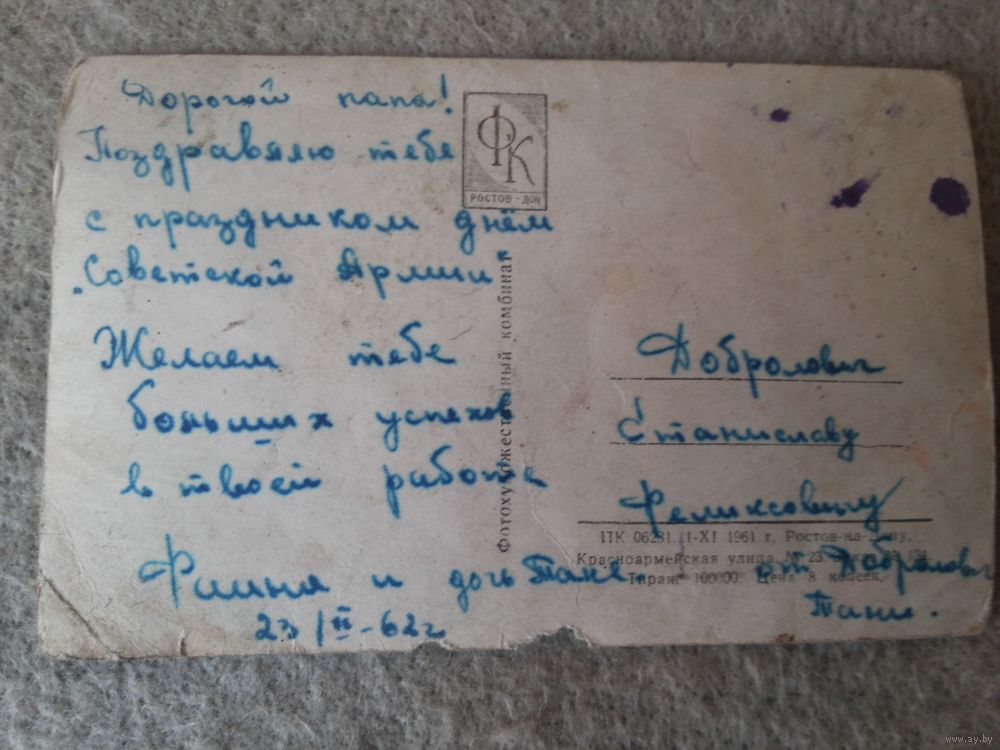 Дорогой папа!
Поздравляю тебя
с праздником днём
"Советской Армии"
Желаем тебе
больших успехов
в твоей работе
и дочь Таня.
23/II-62г
ФК
РОСТОВ-ДОН
Фотохудожественный комбинат
Добролович
Станиславу
Феликсовичу
ПТК 06231. 1-XI 1961 г. Ростов-на-Дону.
Красноармейская улица, № 23
Тираж 100000. Цена 8 копеек.
от Добролович
Тани.
www.ay.by